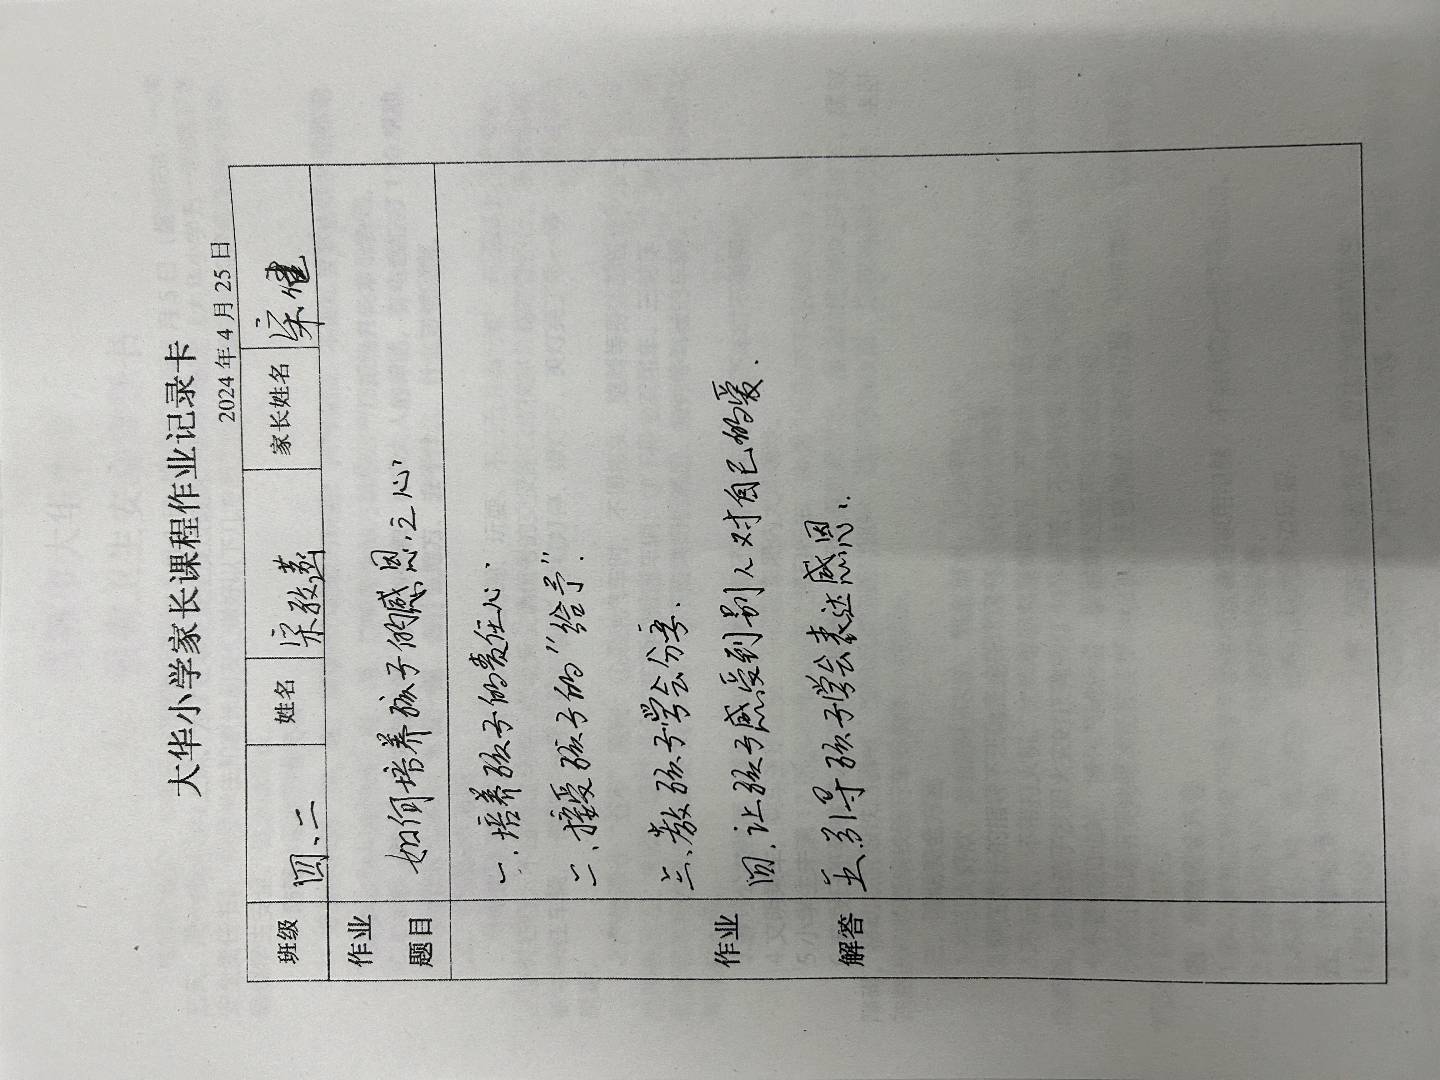 大华小学家长课程作业记录卡
2024 年 4 月 25 日
班级 四、二 姓名 宋 家长姓名 宋健
作业题目 如何培养孩子的感恩之心
作业解答
一、培养孩子的责任心.
二、接受孩子的“给予”.
三、教孩子学会分享.
四、让孩子感受到别人对自己的爱.
五、引导孩子学会表达感恩.